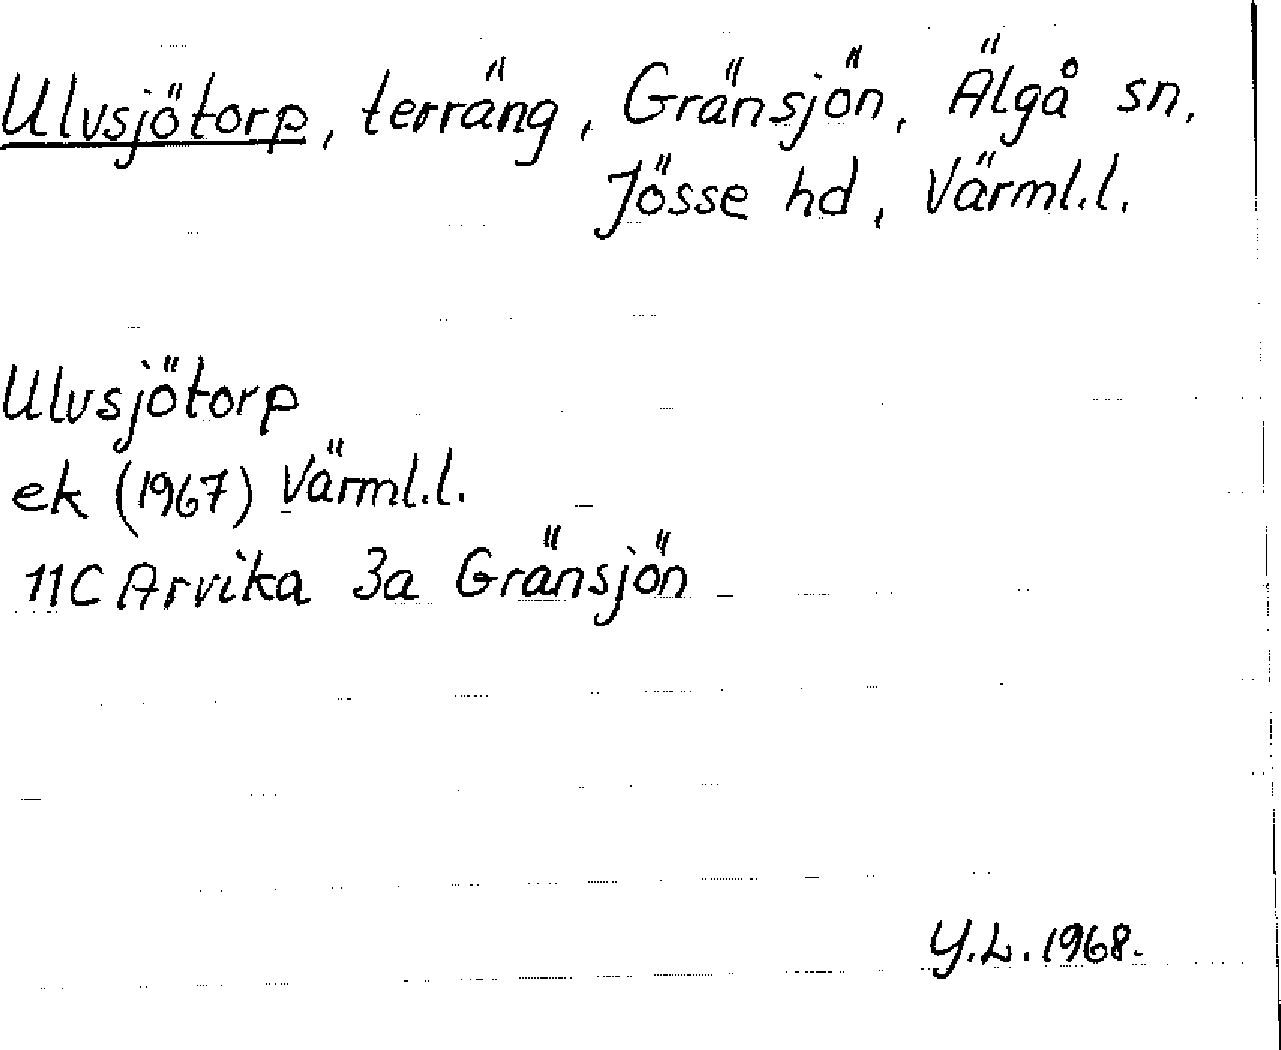 Ulvsjötorp, terräng, Gränsjön, Älgå sn,
Jösse hd, Värml.l.
Ulvsjötorp
ek (1967) Värml.l.
11C Arvika 3a Gränsjön
Y.L. 1968.